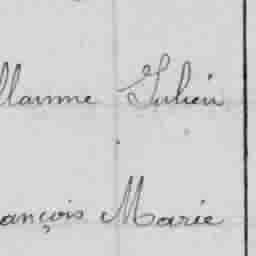 llaume Julien
ançois Marie